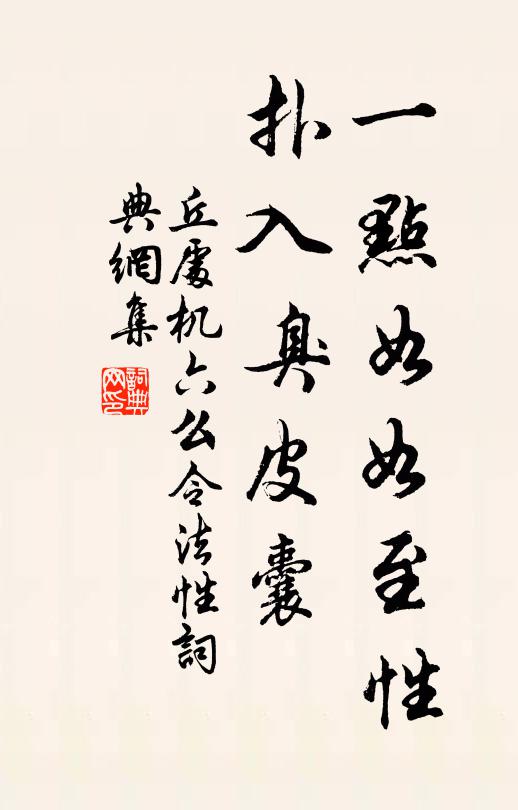 一點如如至性
扑入臭皮囊
丘處机六么令法性詞
典網集
詞典網印